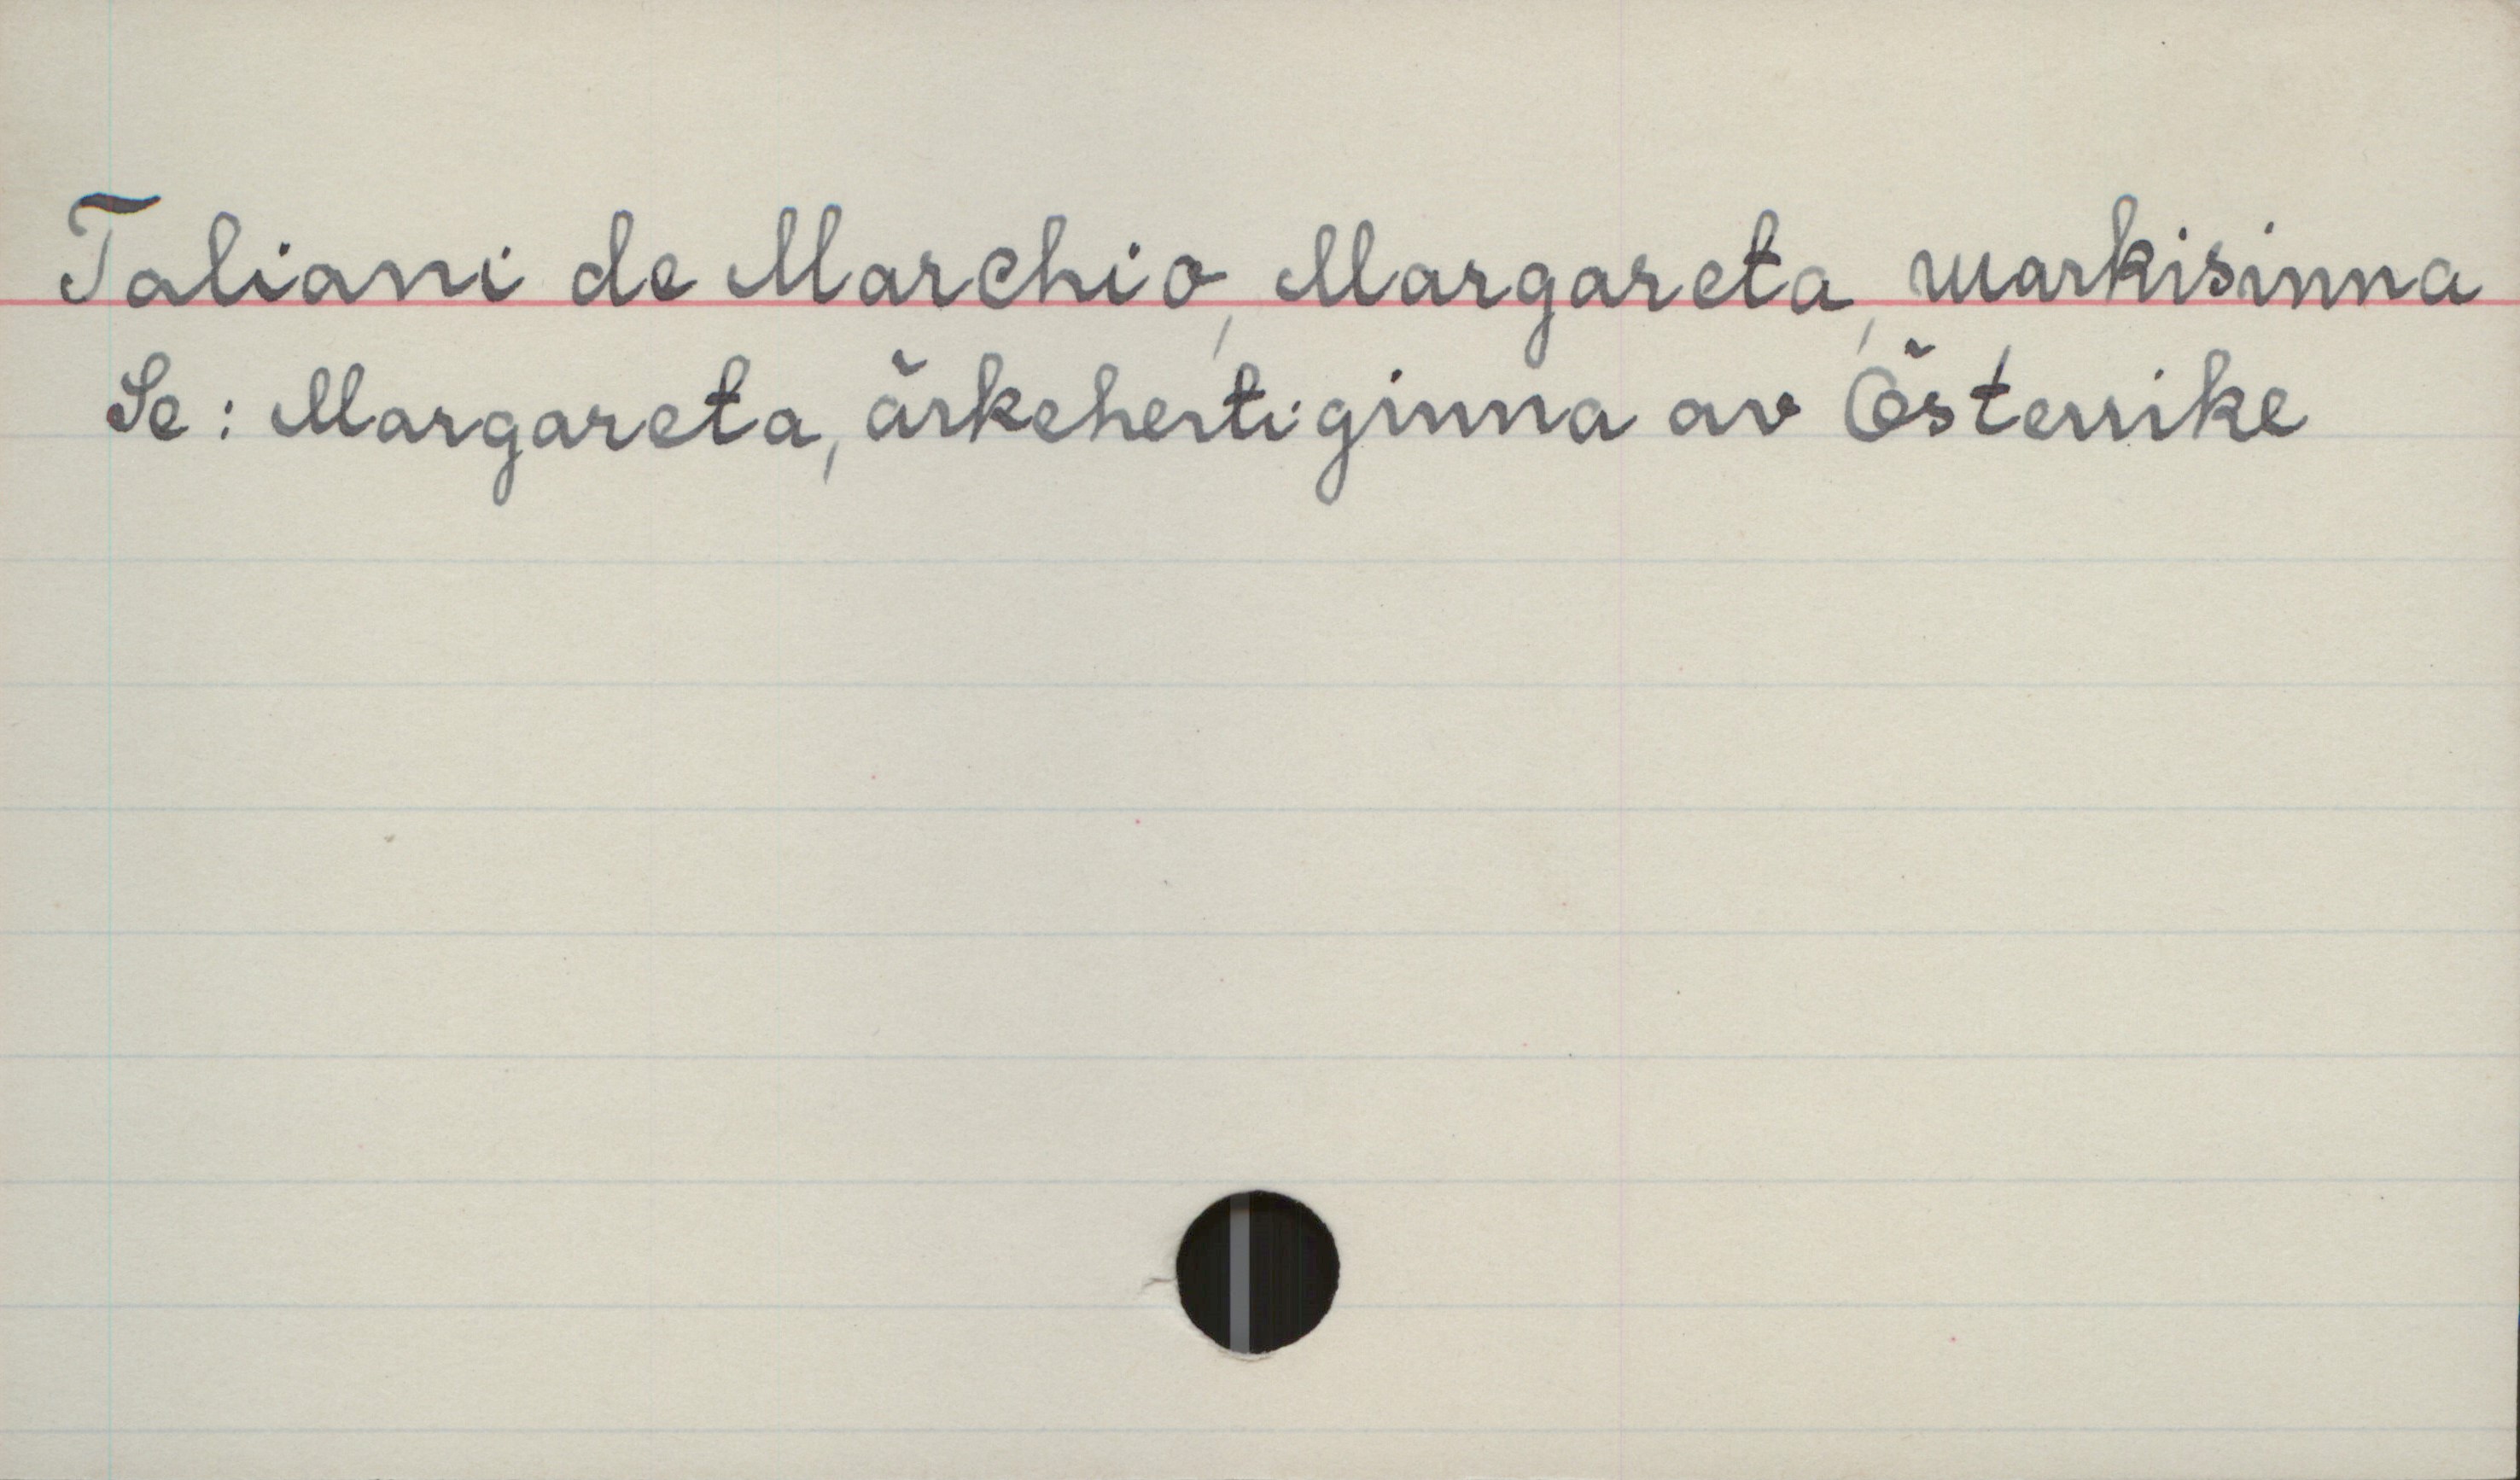 Taliani de Marchio, Margareta, markisinna
Se: Margareta, ärkehertiginna av Österrike